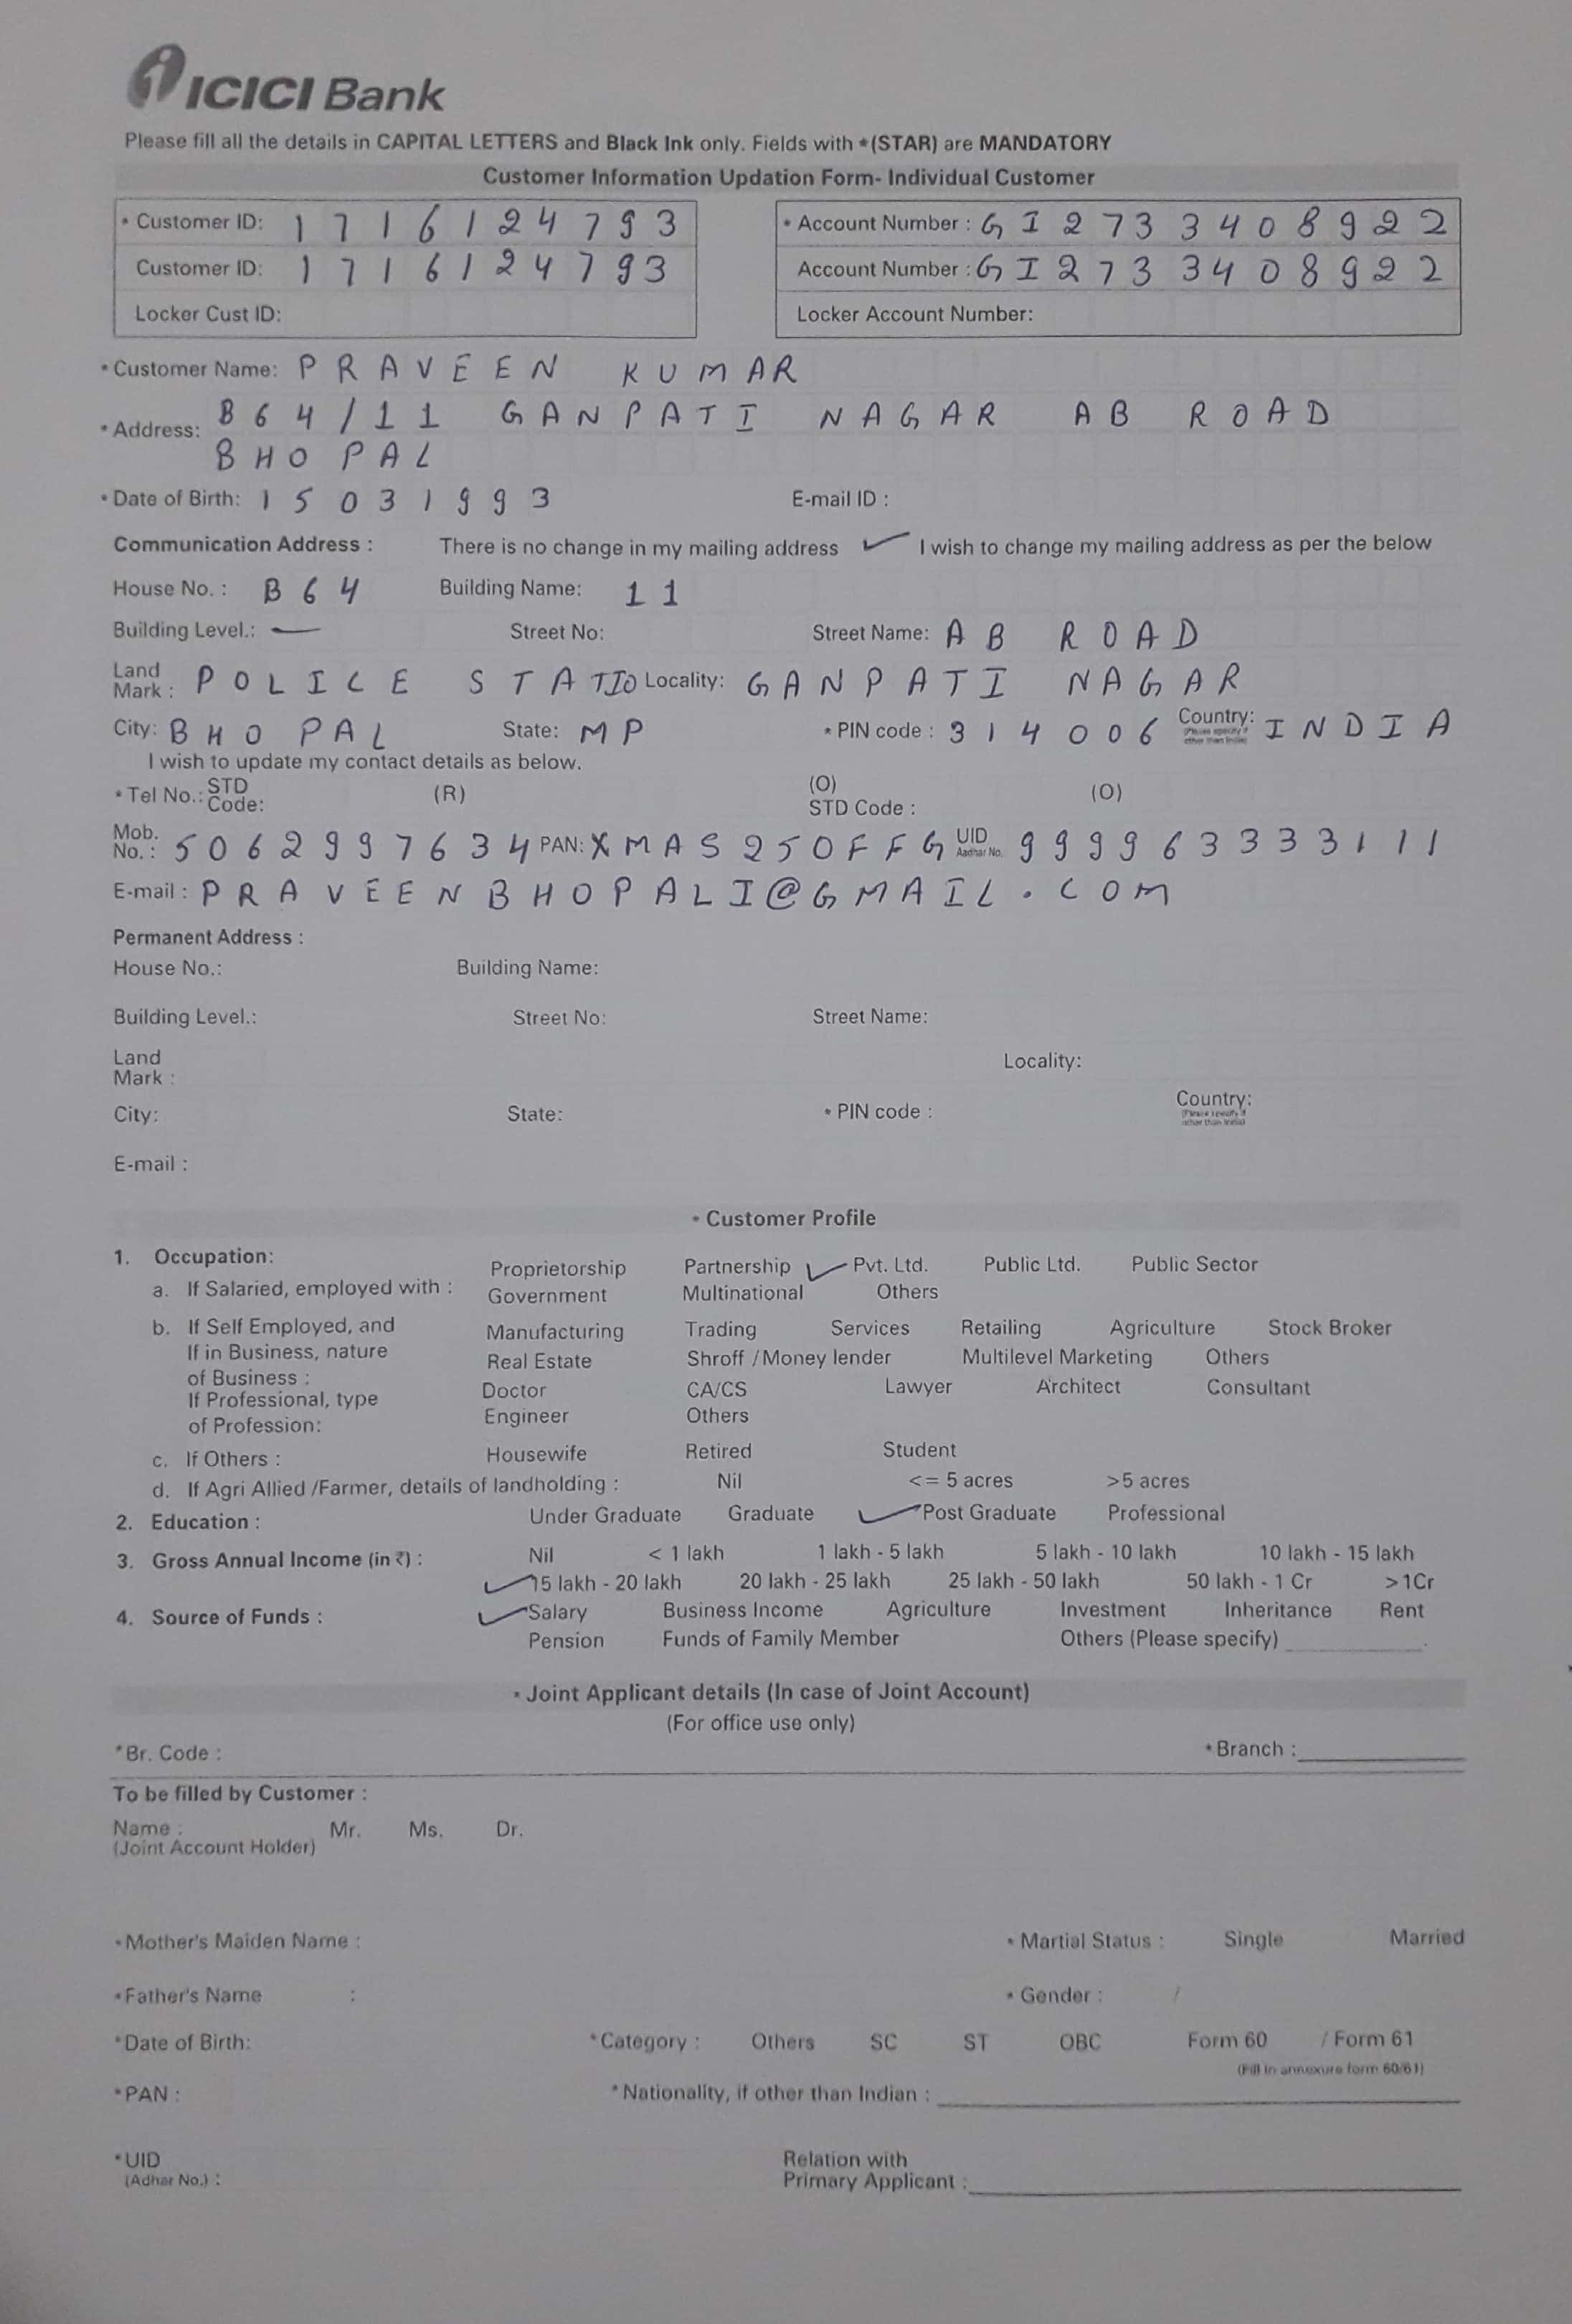 ICICI Bank
Please fill all the details in CAPITAL LETTERS and Black Ink only. Fields with *(STAR) are MANDATORY
Customer Information Updation Form- Individual Customer
* Customer ID: 1716124793 * Account Number : GI2733408922
Customer ID: 1716124793 Account Number : GI2733408922
Locker Cust ID: Locker Account Number:
* Customer Name: PRAVEEN KUMAR
* Address: B64/11 GANPATI NAGAR AB ROAD
BHOPAL
* Date of Birth: 15031993 E-mail ID :
Communication Address : There is no change in my mailing address ✓ I wish to change my mailing address as per the below
House No. : B64 Building Name: 11
Building Level.: — Street No: Street Name: AB ROAD
Land Mark : POLICE STATIO Locality: GANPATI NAGAR
City: BHOPAL State: MP * PIN code : 314006 Country: (Please specify if other than India) INDIA
I wish to update my contact details as below.
* Tel No.: STD Code: (R) (O) STD Code : (O)
Mob. No. : 5062997634 PAN: XMAS250FFG UID Aadhar No. 999963333111
E-mail : PRAVEENBHOPALI@GMAIL.COM
Permanent Address :
House No.: Building Name:
Building Level.: Street No: Street Name:
Land Mark : Locality:
City: State: * PIN code : Country: (Please specify if other than India)
E-mail :
* Customer Profile
1. Occupation:
a. If Salaried, employed with : Proprietorship Partnership ✓ Pvt. Ltd. Public Ltd. Public Sector
Government Multinational Others
b. If Self Employed, and Manufacturing Trading Services Retailing Agriculture Stock Broker
If in Business, nature Real Estate Shroff /Money lender Multilevel Marketing Others
of Business :
If Professional, type Doctor CA/CS Lawyer Architect Consultant
of Profession: Engineer Others
c. If Others : Housewife Retired Student
d. If Agri Allied /Farmer, details of landholding : Nil <= 5 acres >5 acres
2. Education : Under Graduate Graduate ✓ Post Graduate Professional
3. Gross Annual Income (in ₹) : Nil < 1 lakh 1 lakh - 5 lakh 5 lakh - 10 lakh 10 lakh - 15 lakh
✓ 15 lakh - 20 lakh 20 lakh - 25 lakh 25 lakh - 50 lakh 50 lakh - 1 Cr >1Cr
4. Source of Funds : ✓ Salary Business Income Agriculture Investment Inheritance Rent
Pension Funds of Family Member Others (Please specify)
* Joint Applicant details (In case of Joint Account)
(For office use only)
*Br. Code : * Branch :
To be filled by Customer :
Name : Mr. Ms. Dr.
(Joint Account Holder)
* Mother's Maiden Name : * Martial Status : Single Married
* Father's Name : * Gender : /
*Date of Birth: *Category : Others SC ST OBC Form 60 / Form 61
(Fill in annexure form 60/61)
*PAN : *Nationality, if other than Indian :
*UID Relation with
(Adhar No.) : Primary Applicant :